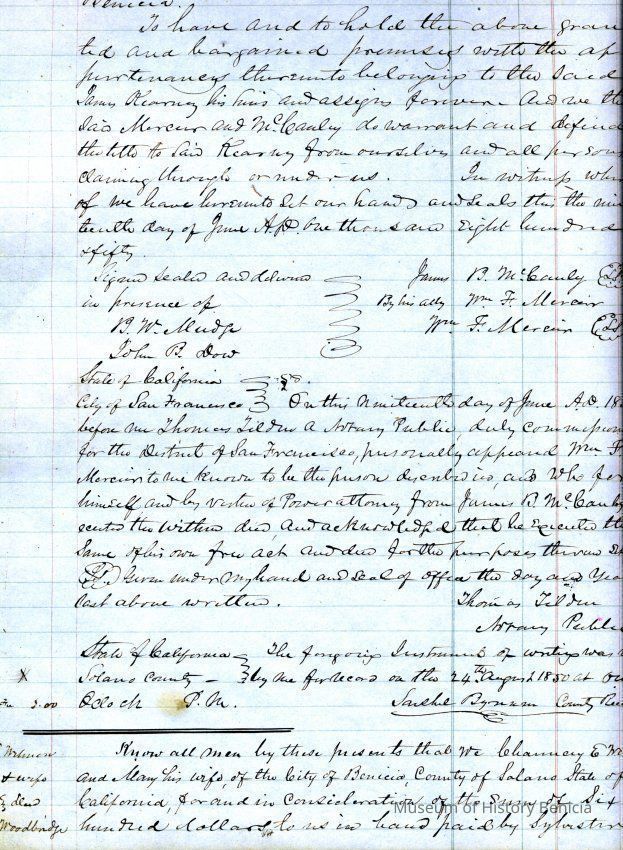 Benicia.
To have and to hold the above gran
ted and bargained premises with the ap
purtenancys thereunto belonging to the said
James Kearney his heirs and assigns forever And we the
said Mercier and McCauly do warrant and defend
the title to said Kearney from ourselves and all person
claiming through or under us. In witness wher
of we have hereunto set our hands and seals this the nin
teenth day of June A.D. One thousand Eight hundred
& fifty.
Signed sealed and delivered James B. McCauly
in presence of By his atty Wm F. Mercier
B. W. Mudge Wm F. Mercier
John B. Dow
State of California ss.
City of San Francisco On this Nineteenth day of June A.D. 18
before me Thomas Tilden a Notary Public, duly commission
for the District of San Francisco, personally appeared Wm F.
Mercier to me known to be the person described in, and who for
himself and by virtue of Power attorney from James B. McCauly
ecuted the within deed, and acknowledged that he Executed the
same of his own free act and deed for the purposes therein
Given under my hand and seal of office the day and Yea
last above written. Thomas Tilden
Notary Public
State of California The foregoing Instrument of writing was
X Solano County by me for record on the 24th August 1850 at
3.00 Oclock P.M. County Rec
Know all men by these presents that We Chauncey E
& wife and Mary his wife, of the City of Benicia County of Solano State of
deed California, for and in consideration of the Sum of Six
Woodbridge hundred dollars, to us in hand paid by Sylvester
Museum of History Benicia